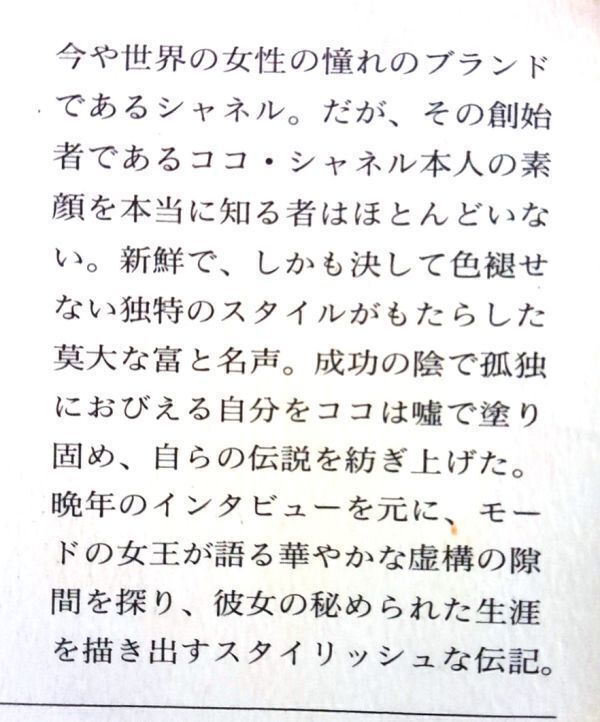 今や世界の女性の憧れのブランド
であるシャネル。だが、その創始
者であるココ・シャネル本人の素
顔を本当に知る者はほとんどいな
い。新鮮で、しかも決して色褪せ
ない独特のスタイルがもたらした
莫大な富と名声。成功の陰で孤独
におびえる自分をココは嘘で塗り
固め、自らの伝説を紡ぎ上げた。
晩年のインタビューを元に、モー
ドの女王が語る華やかな虚構の隙
間を探り、彼女の秘められた生涯
を描き出すスタイリッシュな伝記。